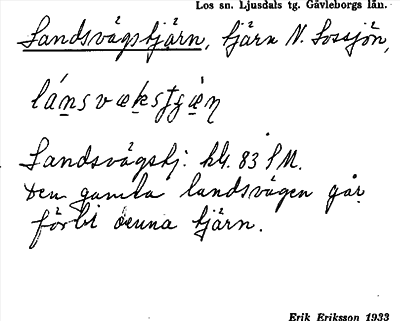 Los sn. Ljusdals tg. Gävleborgs län.
Landsvägstjärn, tjärn N. Lossjön,
Landsvägstj. kbl. 83 SM.
Den gamla landsvägen går
förbi denna tjärn.
Erik Eriksson 1933